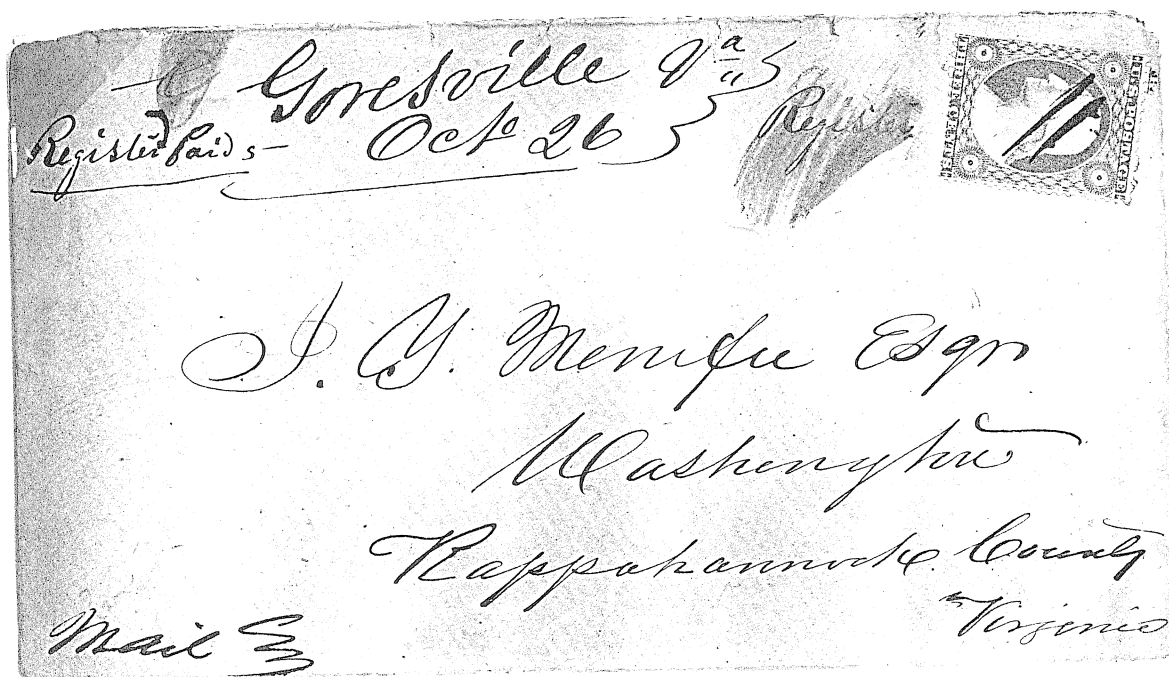 Goresville Va
Registerd Paid 5 - Oct 26
Register
J. Y. Menifee Esqr
Washington
Rappahannock County
Virginia
Mail